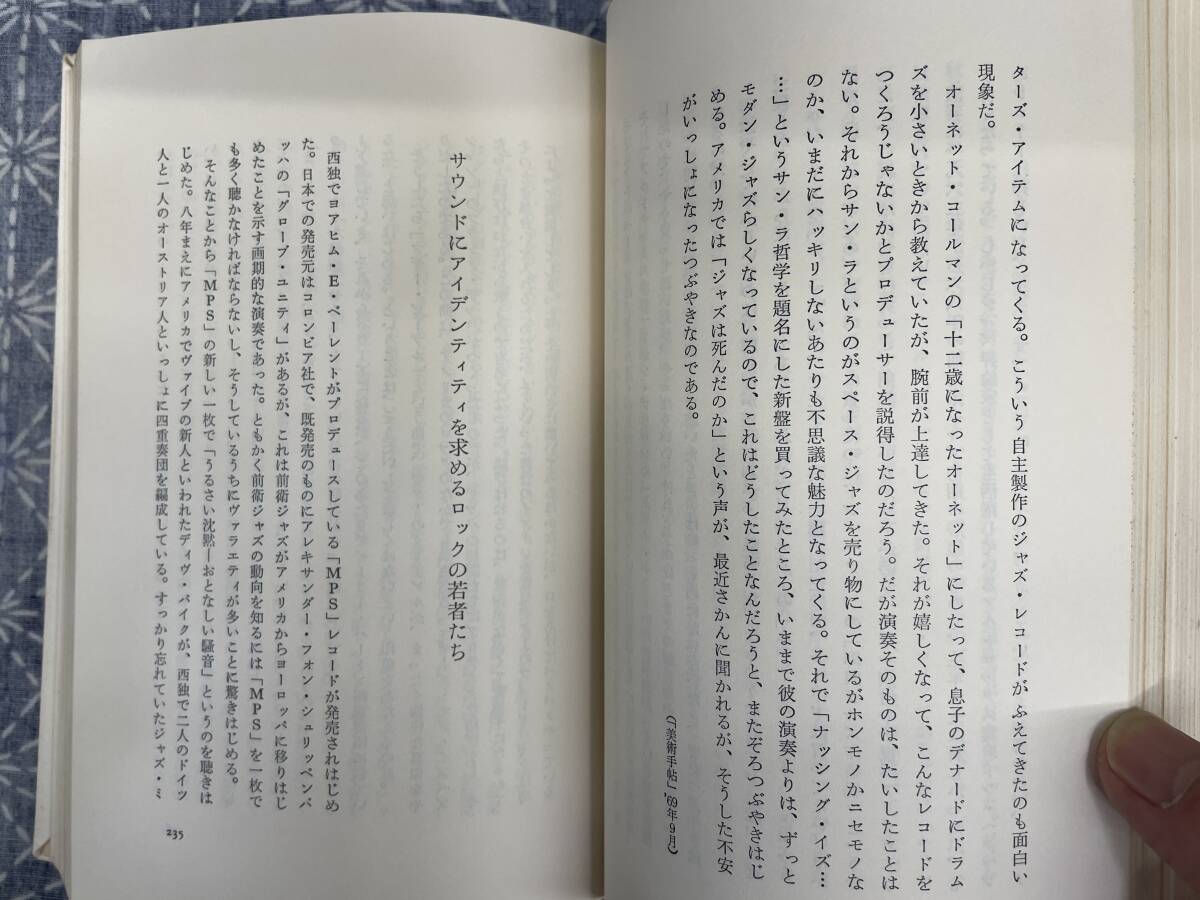 ターズ・アイテムになってくる。こういう自主製作のジャズ・レコードがふえてきたのも面白い
現象だ。
オーネット・コールマンの「十二歳になったオーネット」にしたって、息子のデナードにドラム
ズを小さいときから教えていたが、腕前が上達してきた。それが嬉しくなって、こんなレコードを
つくろうじゃないかとプロデューサーを説得したのだろう。だが演奏そのものは、たいしたことは
ない。それからサン・ラというのがスペース・ジャズを売り物にしているがホンモノかニセモノな
のか、いまだにハッキリしないあたりも不思議な魅力となってくる。それで「ナッシング・イズ…
…」というサン・ラ哲学を題名にした新盤を買ってみたところ、いままで彼の演奏よりは、ずっと
モダン・ジャズらしくなっているので、これはどうしたことなんだろうと、またぞろつぶやきはじ
める。アメリカでは「ジャズは死んだのか」という声が、最近さかんに聞かれるが、そうした不安
がいっしょになったつぶやきなのである。
(「美術手帖」'69年9月)
サウンドにアイデンティティを求めるロックの若者たち
西独でヨアヒム・E・ベーレントがプロデュースしている「MPS」レコードが発売されはじめ
た。日本での発売元はコロンビア社で、既発売のものにアレキサンダー・フォン・シュリッペンバ
ッハの「グローブ・ユニティ」があるが、これは前衛ジャズがアメリカからヨーロッパに移りはじ
めたことを示す画期的な演奏であった。ともかく前衛ジャズの動向を知るには「MPS」を一枚で
も多く聴かなければならないし、そうしているうちにヴァラエティが多いことに驚きはじめる。
そんなことから「MPS」の新しい一枚で「うるさい沈黙―おとなしい騒音」というのを聴きは
じめた。八年まえにアメリカでヴァイブの新人といわれたディヴ・パイクが、西独で二人のドイツ
人と一人のオーストリア人といっしょに四重奏団を編成している。すっかり忘れていたジャズ・ミ
235